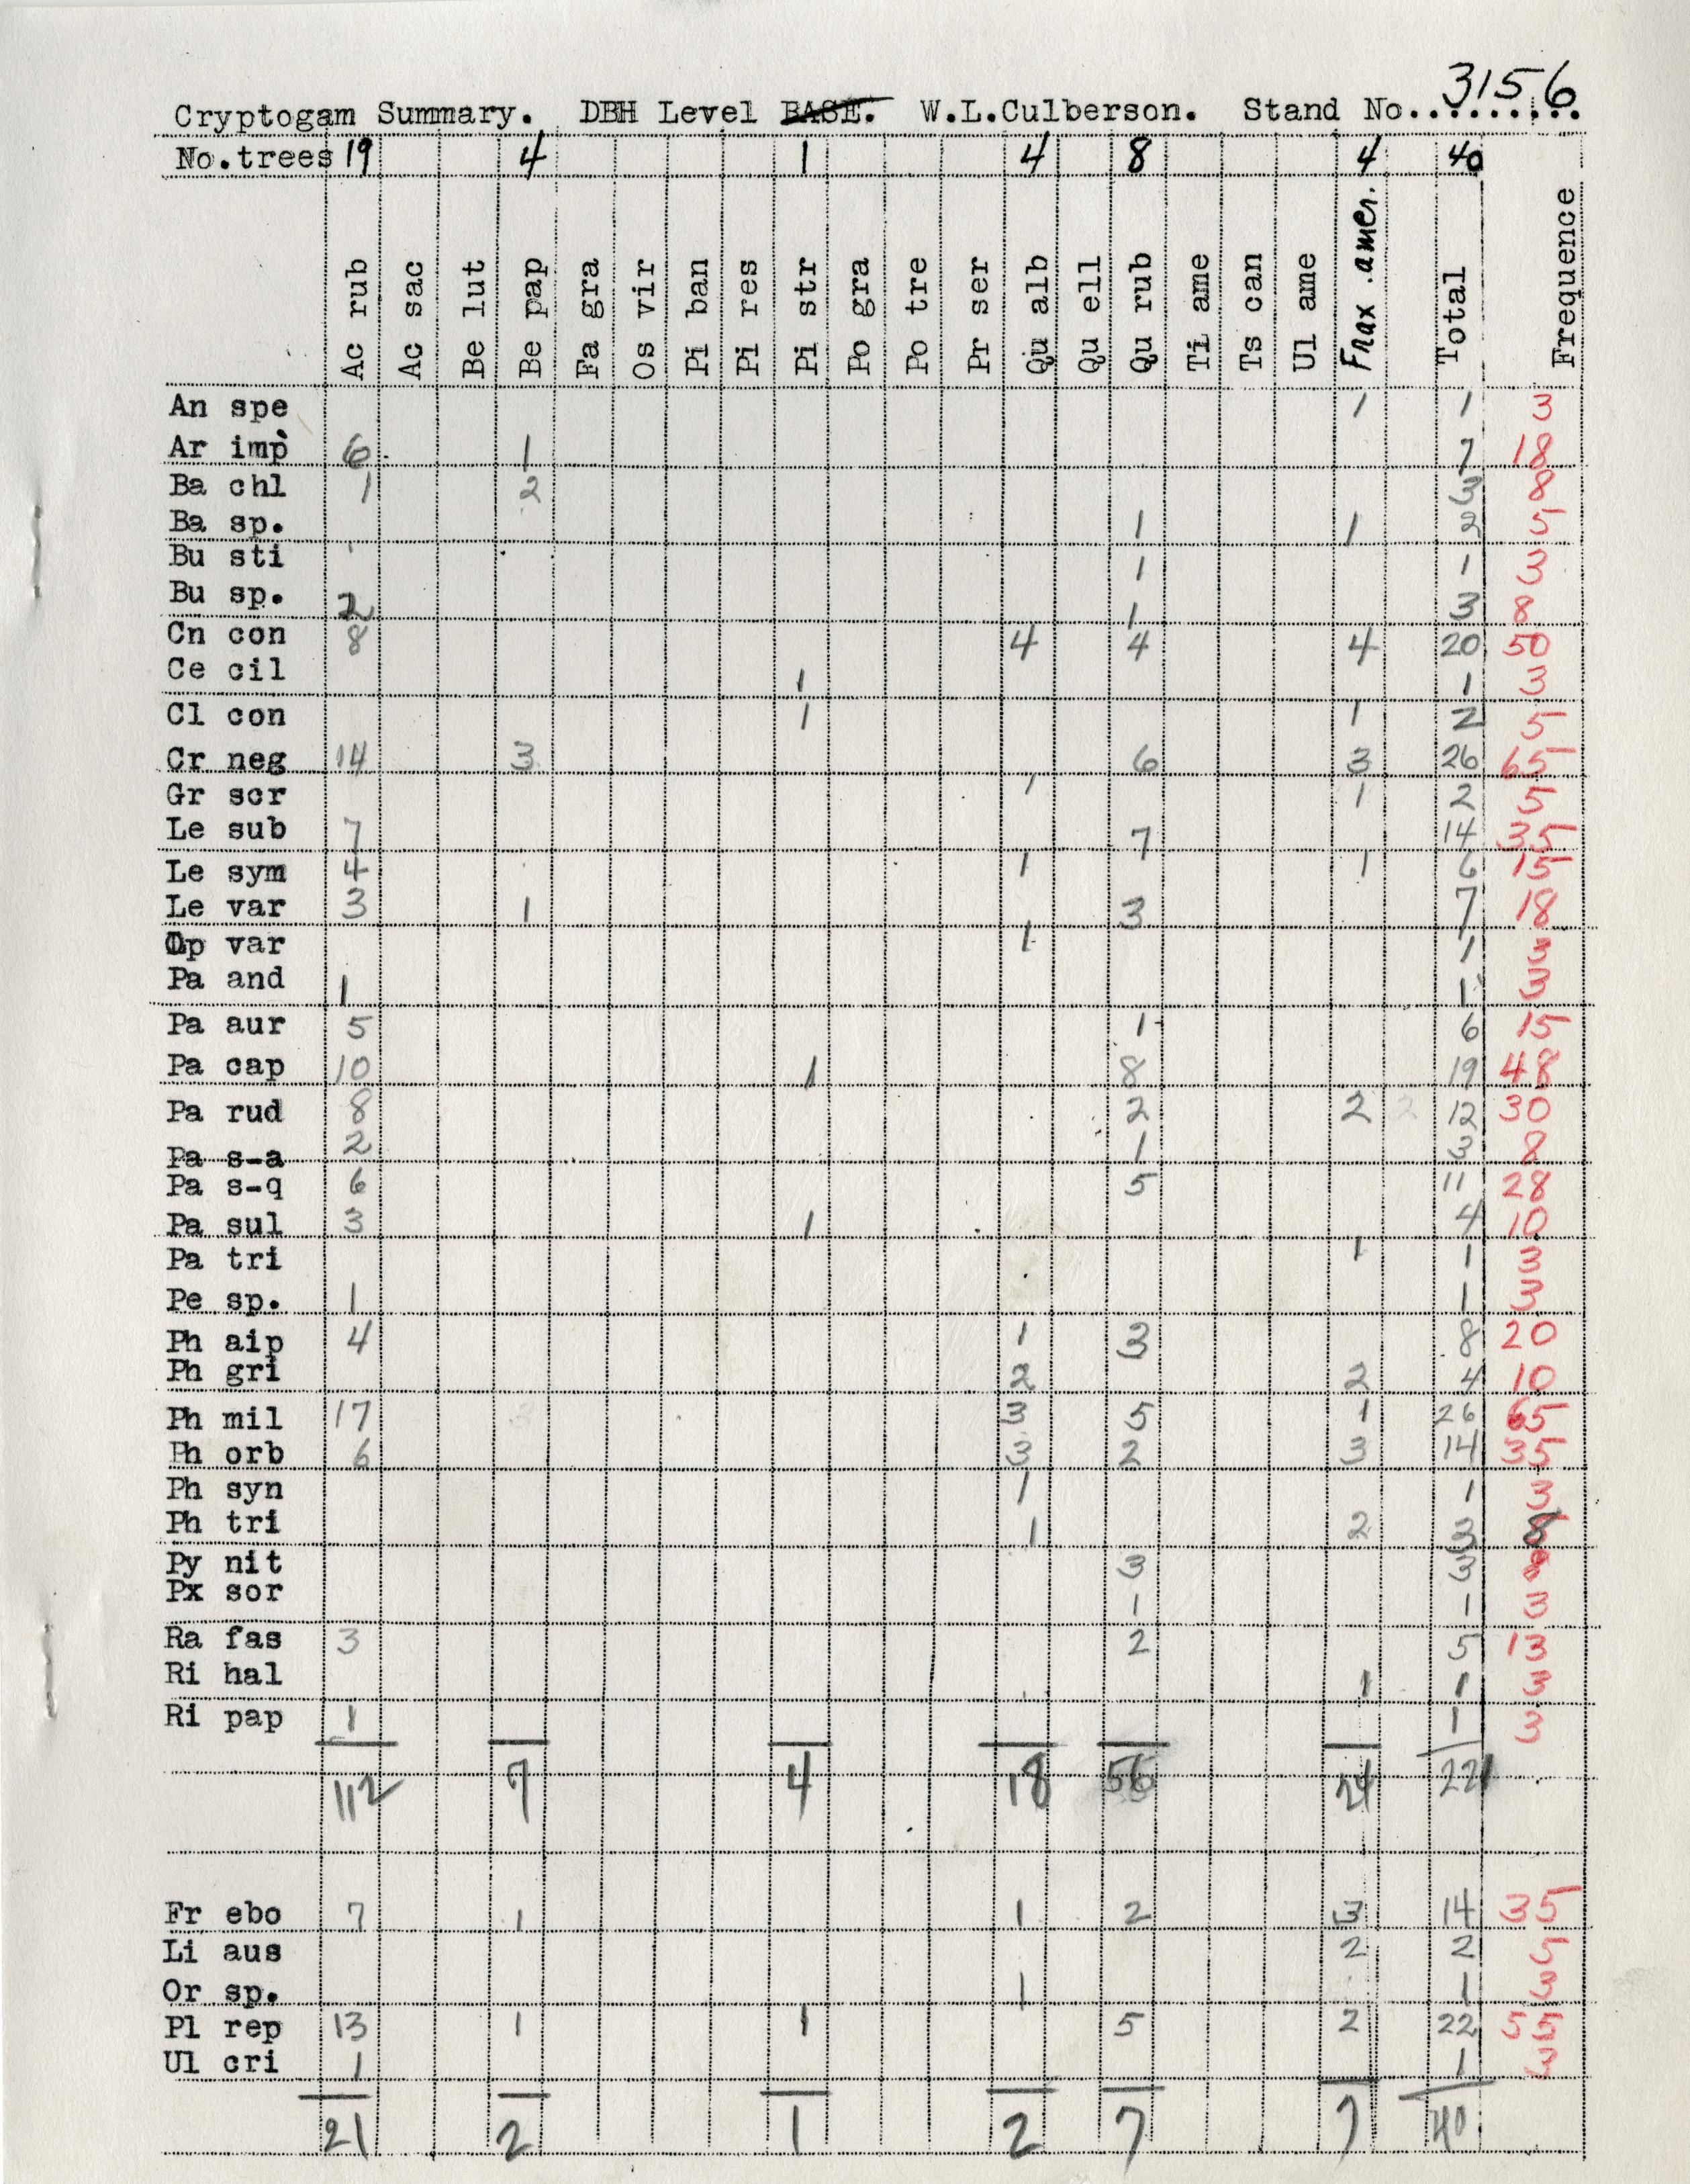 Cryptogam Summary. DBH Level BASE. W.L.Culberson. Stand No.. 3156
No.trees 19 4 1 4 8 4 40
Ac rub Ac sac Be lut Be pap Fa gra Os vir Pi ban Pi res Pi str Po gra Po tre Pr ser Qu alb Qu ell Qu rub Ti ame Ts can Ul ame Frax. amer. Total Frequence
An spe 1 1 3
Ar imp 6 1 7 18
Ba chl 1 2 3 8
Ba sp. 1 1 2 5
Bu sti 1 1 3
Bu sp. 2 1 3 8
Cn con 8 4 4 4 20 50
Ce cil 1 1 3
Cl con 1 1 2 5
Cr neg 14 3 6 3 26 65
Gr scr 1 1 2 5
Le sub 7 7 14 35
Le sym 4 1 1 6 15
Le var 3 1 3 7 18
Op var 1 1 3
Pa and 1 1 3
Pa aur 5 1 6 15
Pa cap 10 1 8 19 48
Pa rud 8 2 2 2 12 30
Pa s-a 2 1 3 8
Pa s-q 6 5 11 28
Pa sul 3 1 4 10
Pa tri 1 1 3
Pe sp. 1 1 3
Ph aip 4 1 3 8 20
Ph gri 2 2 4 10
Ph mil 17 3 5 1 26 65
Ph orb 6 3 2 3 14 35
Ph syn 1 1 3
Ph tri 1 2 3 8
Py nit 3 3
Px sor 1 1 3
Ra fas 3 2 5 13
Ri hal 1 1 3
Ri pap 1 1 3
112 7 4 18 56 24 221
Fr ebo 7 1 1 2 3 14 35
Li aus 2 2 5
Or sp. 1 1 3
Pl rep 13 1 1 5 2 22 55
Ul cri 1 1 3
21 2 1 2 7 7 40